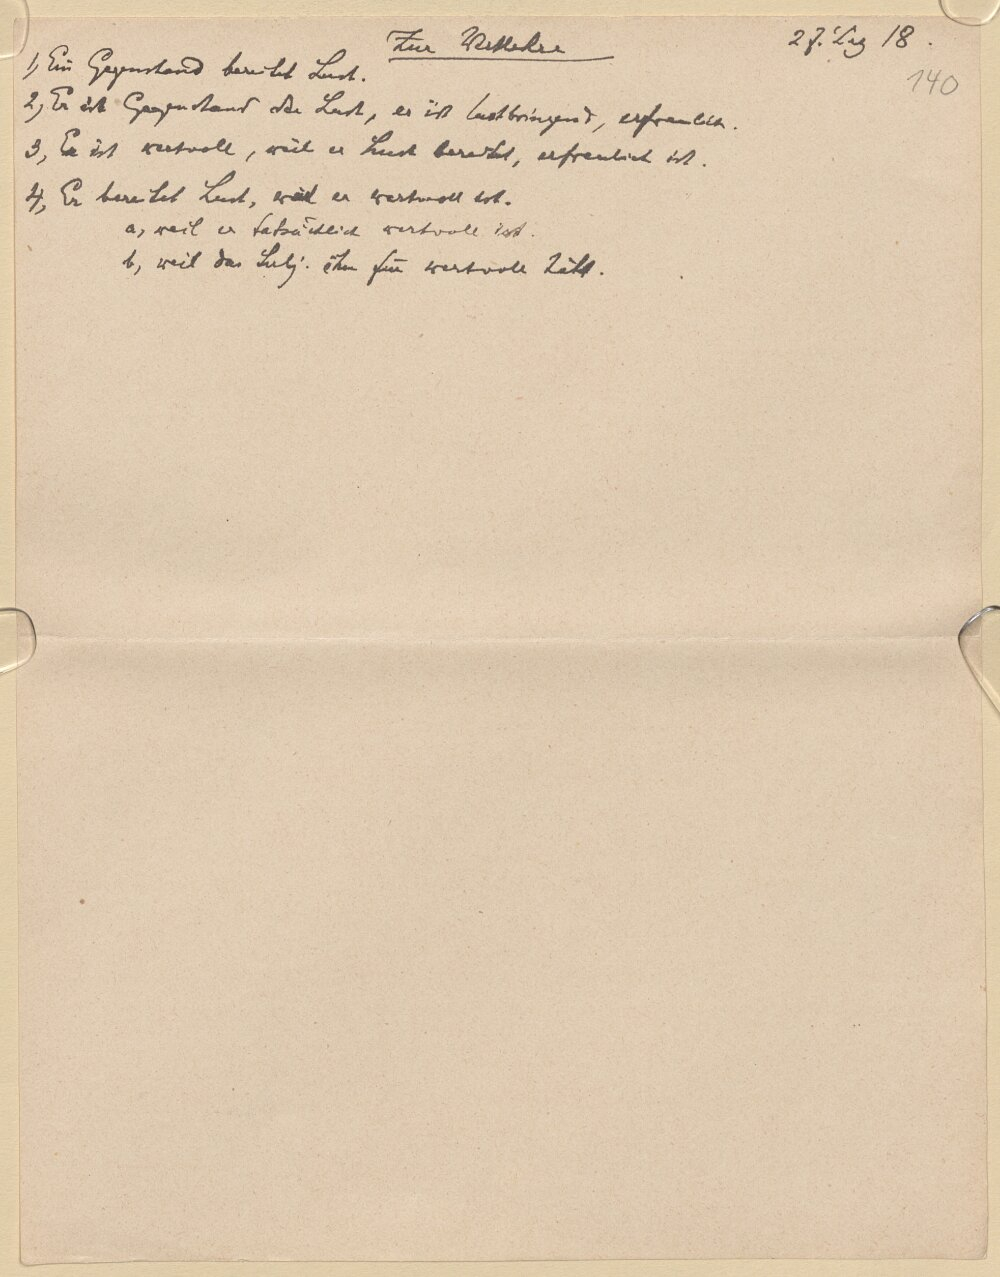 Zur Wertlehre 27. Aug 18.
140
1, Ein Gegenstand bereitet Lust.
2, Er ist Gegenstand der Lust, er ist lustbringend, erfreulich.
3, Er ist wertvoll, weil er Lust bereitet, erfreulich ist.
4, Er bereitet Lust, weil er wertvoll ist.
a, weil er tatsächlich wertvoll ist.
b, weil das Subj. ihn für wertvoll hält.